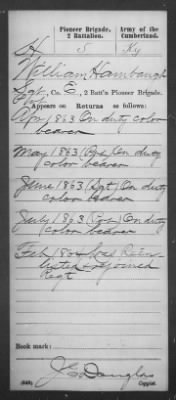 Pioneer Brigade, Army of the
2 Battalion. Cumberland.
H 5 Ky
William Hambaugh
Sgt, Co. E, 2 Batt'n Pioneer Brigade.
Appears on Returns as follows:
Apr 1863 On duty color
bearer
May 1863 On duty
color bearer
June 1863 (Sgt) On duty
color bearer
July 1863 On duty
color bearer
Feb
rejoined
Regt
Book mark:
J E Douglas
Copyist.